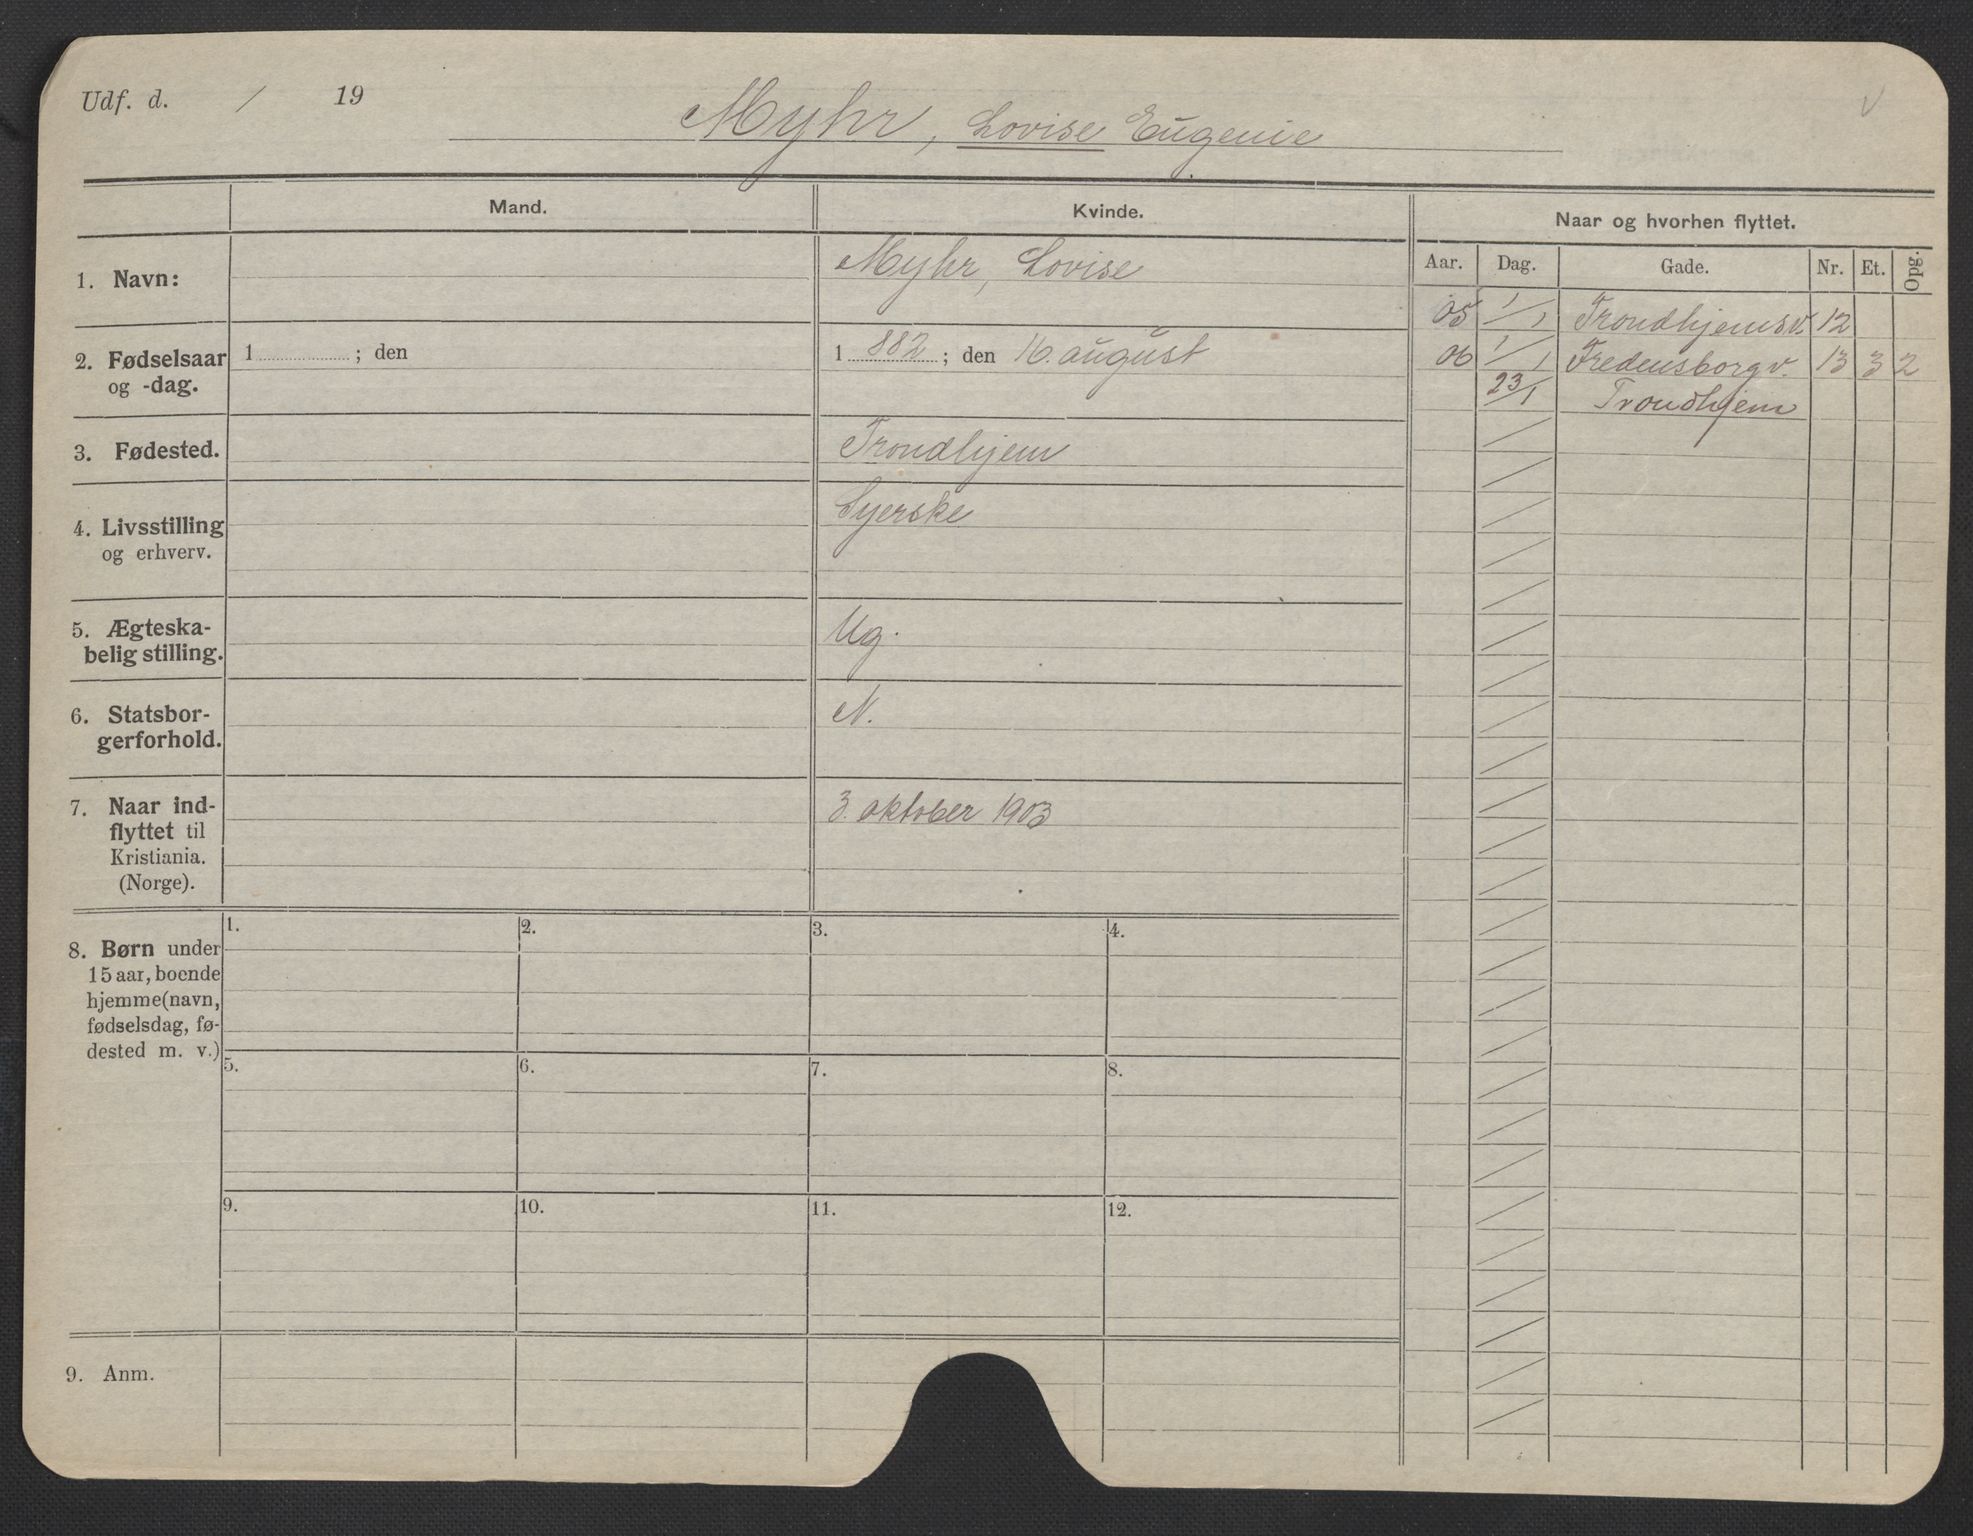 Udf. d. / 19
Myhr, Lovise Eugenie
V
Mand.
Kvinde.
Naar og hvorhen flyttet.
Aar. Dag. Gade. Nr. Et. Opg.
1. Navn:
Myhr, Lovise
05 1/1 Trondhjemsv. 12
2. Fødselsaar
og -dag.
1 ; den
1 882 ; den 16. august
06 1/1 Fredensborgv. 13 3 2
23/1 Trondhjem
3. Fødested.
Trondhjem
4. Livsstilling
og erhverv.
Syerske
5. Ægteska-
belig stilling.
Ug.
6. Statsbor-
gerforhold.
N.
7. Naar ind-
flyttet til
Kristiania.
(Norge).
3. oktober 1903
8. Børn under
15 aar, boende
hjemme (navn,
fødselsdag, fø-
dested m. v.)
1. 2. 3. 4.
5. 6. 7. 8.
9. 10. 11. 12.
9. Anm.